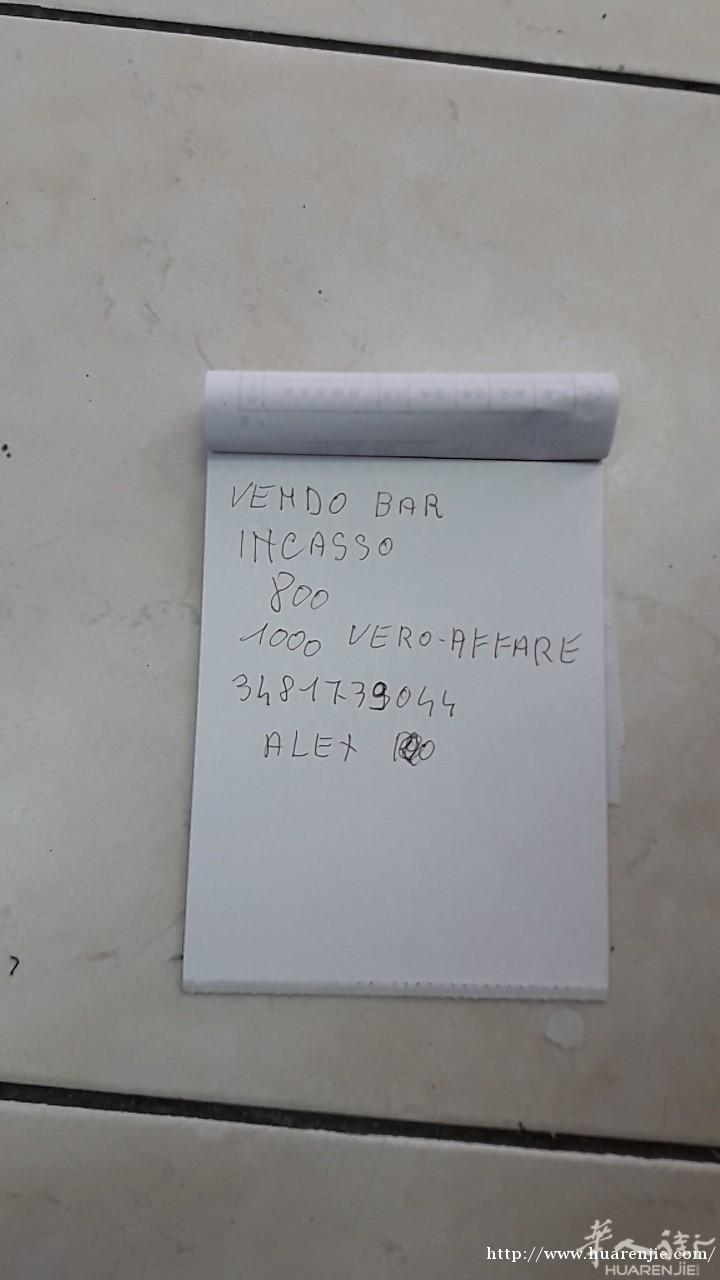 VENDO BAR
INCASSO
800
1000 VERO-AFFARE
3481739044
ALEX
華人街
HUARENJIE
http://www.huarenjie.com/